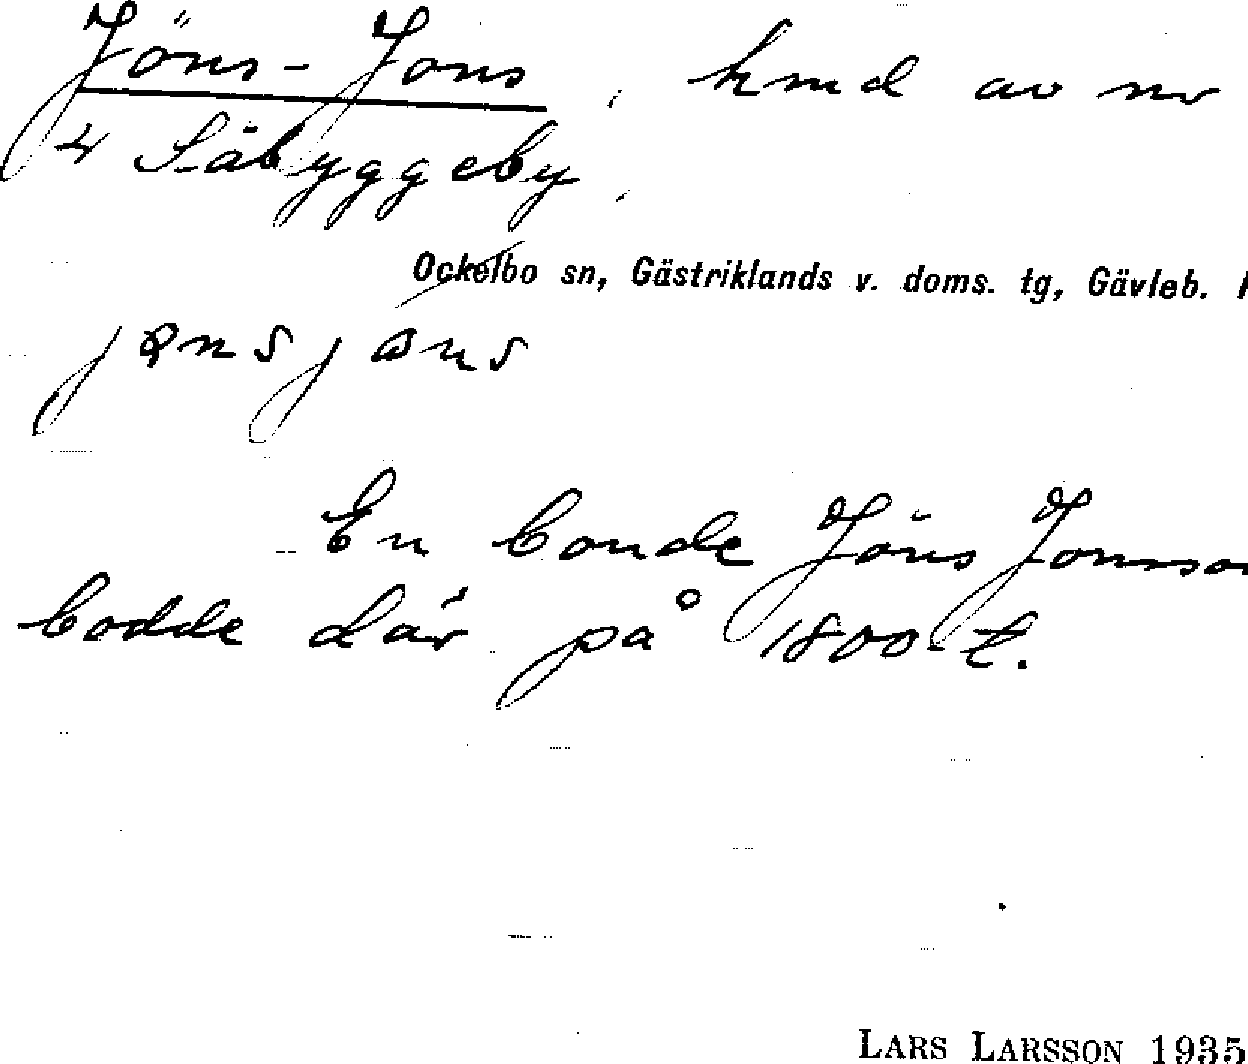 Jöns-Jons, hmd av nr
4 Säbyggeby.
Ockelbo sn, Gästriklands v. doms. tg, Gävleb.
jønsjɷns
En bonde Jöns Jonsson
bodde där på 1800-t.
LARS LARSSON 1935